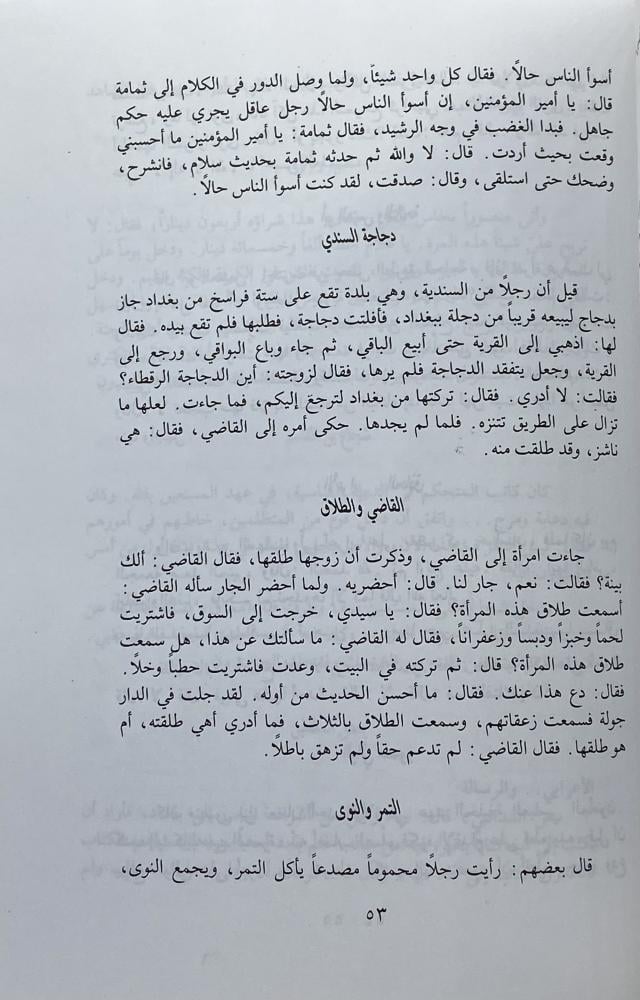 أسوأ الناس حالاً. فقال كل واحد شيئاً، ولما وصل الدور في الكلام إلى ثمامة
قال: يا أمير المؤمنين، إن أسوأ الناس حالاً رجل عاقل يجري عليه حكم
جاهل. فبدا الغضب في وجه الرشيد، فقال ثمامة: يا أمير المؤمنين ما أحسبني
وقعت بحيث أردت. قال: لا والله ثم حدثه ثمامة بحديث سلام، فانشرح،
وضحك حتى استلقى، وقال: صدقت، لقد كنت أسوأ الناس حالاً.
دجاجة السندي
قيل أن رجلاً من السندية، وهي بلدة تقع على ستة فراسخ من بغداد جاز
بدجاج ليبيعه قريباً من دجلة ببغداد، فأفلتت دجاجة، فطلبها فلم تقع بيده. فقال
لها: اذهبي إلى القرية حتى أبيع الباقي، ثم جاء وباع البواقي، ورجع إلى
القرية، وجعل يتفقد الدجاجة فلم يرها، فقال لزوجته: أين الدجاجة الرقطاء؟
فقالت: لا أدري. فقال: تركتها من بغداد لترجع إليكم، فما جاءت. لعلها ما
تزال على الطريق تتنزه. فلما لم يجدها. حكى أمره إلى القاضي، فقال: هي
ناشز، وقد طلقت منه.
القاضي والطلاق
جاءت امرأة إلى القاضي، وذكرت أن زوجها طلقها، فقال القاضي: ألك
بينة؟ فقالت: نعم، جار لنا. قال: أحضريه. ولما أحضر الجار سأله القاضي:
أسمعت طلاق هذه المرأة؟ فقال: يا سيدي، خرجت إلى السوق، فاشتريت
لحماً وخبزاً ودبساً وزعفراناً، فقال له القاضي: ما سألتك عن هذا، هل سمعت
طلاق هذه المرأة؟ قال: ثم تركته في البيت، وعدت فاشتريت حطباً وخلاً.
فقال: دع هذا عنك. فقال: ما أحسن الحديث من أوله. لقد جلت في الدار
جولة فسمعت زعقاتهم، وسمعت الطلاق بالثلاث، فما أدري أهي طلقته، أم
هو طلقها. فقال القاضي: لم تدعم حقاً ولم تزهق باطلاً.
التمر والنوى
قال بعضهم: رأيت رجلاً محموماً مصدعاً يأكل التمر، ويجمع النوى،
٥٣